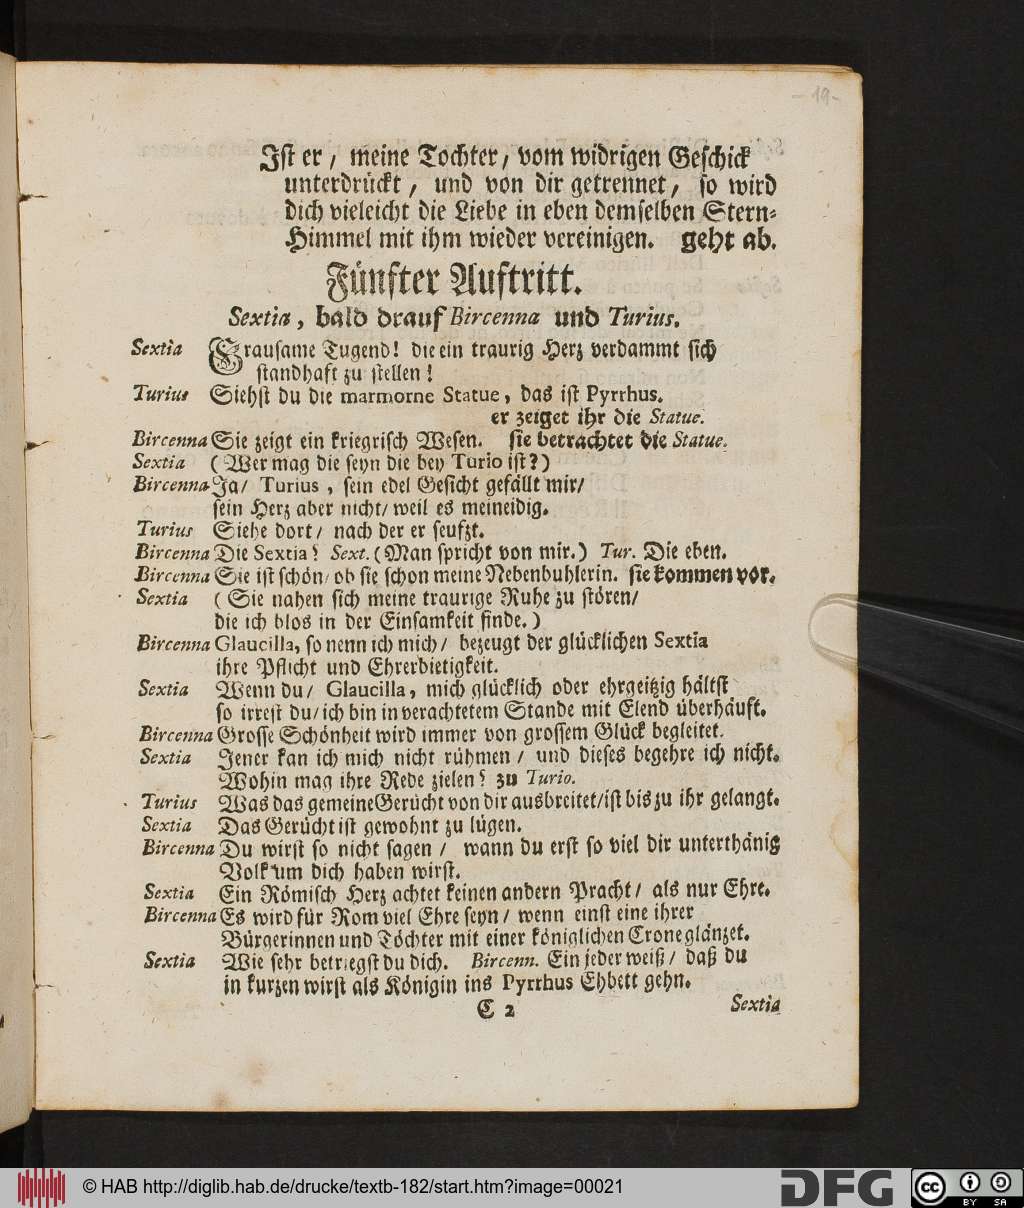 - 19 -
Ist er / meine Tochter / vom widrigen Geschick
unterdrückt / und von dir getrennet / so wird
dich vieleicht die Liebe in eben demselben Stern-
Himmel mit ihm wieder vereinigen. geht ab.
Fünfter Auftritt.
Sextia, bald drauf Bircenna und Turius.
Sextia Grausame Tugend! die ein traurig Herz verdammt sich
standhaft zu stellen!
Turius Siehst du die marmorne Statue, das ist Pyrrhus.
er zeiget ihr die Statue.
Bircenna Sie zeigt ein kriegrisch Wesen. sie betrachtet die Statue.
Sextia (Wer mag die seyn die bey Turio ist?)
Bircenna Ja/ Turius, sein edel Gesicht gefällt mir/
sein Herz aber nicht/ weil es meineidig.
Turius Siehe dort/ nach der er seufzt.
Bircenna Die Sextia? Sext. (Man spricht von mir.) Tur. Die eben.
Bircenna Sie ist schön/ ob sie schon meine Nebenbuhlerin. sie kommen vor.
Sextia (Sie nahen sich meine traurige Ruhe zu stören/
die ich blos in der Einsamkeit finde.)
Bircenna Glaucilla, so nenn ich mich/ bezeugt der glücklichen Sextia
ihre Pflicht und Ehrerbietigkeit.
Sextia Wenn du/ Glaucilla, mich glücklich oder ehrgeitzig hältst
so irrest du/ ich bin in verachtetem Stande mit Elend überhäuft.
Bircenna Grosse Schönheit wird immer von grossem Glück begleitet.
Sextia Jener kan ich mich nicht rühmen/ und dieses begehre ich nicht.
Wohin mag ihre Rede zielen? zu Turio.
Turius Was das gemeine Gerücht von dir ausbreitet/ ist bis zu ihr gelangt.
Sextia Das Gerücht ist gewohnt zu lügen.
Bircenna Du wirst so nicht sagen / wann du erst so viel dir unterthänig
Volk um dich haben wirst.
Sextia Ein Römisch Herz achtet keinen andern Pracht/ als nur Ehre.
Bircenna Es wird für Rom viel Ehre seyn/ wenn einst eine ihrer
Bürgerinnen und Töchter mit einer königlichen Crone glänzet.
Sextia Wie sehr betriegst du dich. Bircenn. Ein jeder weiß/ daß du
in kurzen wirst als Königin ins Pyrrhus Ehbett gehn.
C 2 Sextia
© HAB http://diglib.hab.de/drucke/textb-182/start.htm?image=00021
DFG
cc BY SA